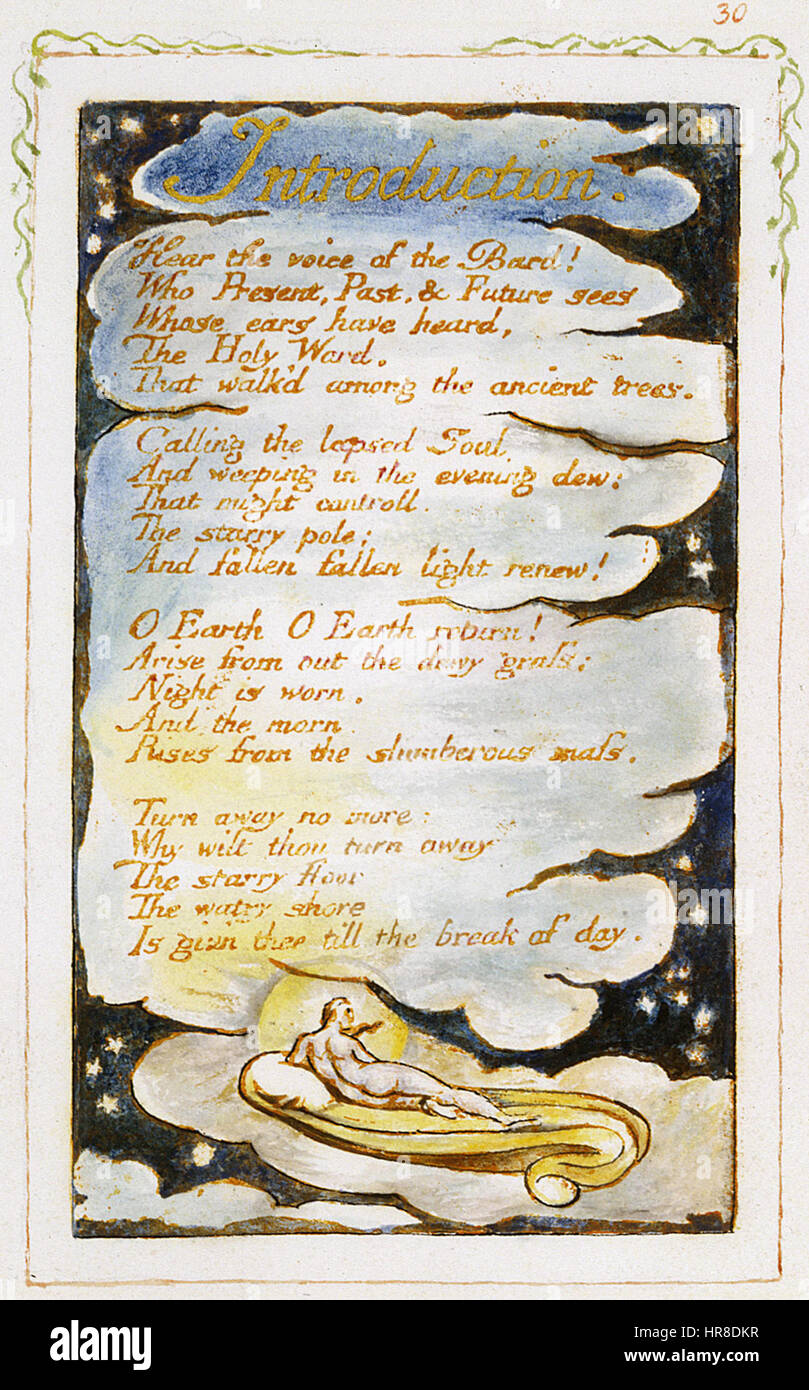 30
Introduction.
Hear the voice of the Bard!
Who Present, Past, & Future sees
Whose ears have heard,
The Holy Word,
That walk'd among the ancient trees.
Calling the lapsed Soul
And weeping in the evening dew:
That might controll.
The starry pole;
And fallen fallen light renew!
O Earth O Earth return!
Arise from out the dewy grass;
Night is worn,
And the morn
Rises from the slumberous mass.
Turn away no more:
Why wilt thou turn away
The starry floor
The watry shore
Is giv'n thee till the break of day.
alamy stock photo
HR8DKR
www.alamy.com